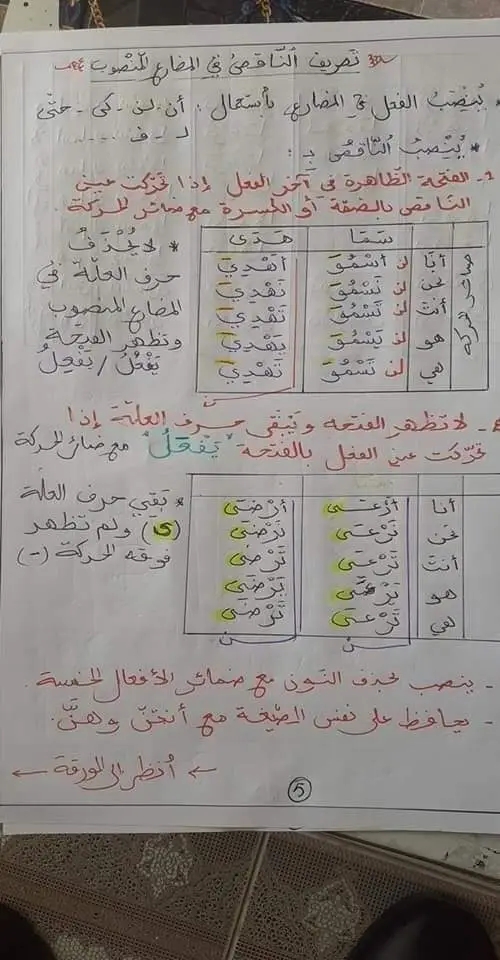 تصريف النّاقص في المضارع المنصوب
* يُنصَبُ الفعل في المضارع بأستعمال : أن - لن - كي - حتّى
لـ - فـ ......
* يُنْصبُ النّاقصُ بـ :
1- الفتحة الظّاهرة في آخر الفعل إذا تحرّكت عين
النّاقص بالضمّة أو الكسرة مع ضمائر الحركة.
سَمَا هَدَى
ضمائر الحركة
أنَا لن أسْمُوَ أهْدِيَ
نحن لن نَسْمُوَ نَهْدِيَ
أنتَ لن تَسْمُوَ تَهْدِيَ
هو لن يَسْمُوَ يَهْدِيَ
هي لن تَسْمُوَ تَهْدِيَ
* لا يُحْذَفُ
حرف العلّة في
المضارع المنصوب
وتظهر الفتحة
يَفْعُلُ / يَفْعِلُ
2- لا تظهر الفتحه ويَبْقى حرف العلّة إذا
تحرّكت عين الفعل بالفتحة "يَفْعَلُ" مع ضمائر الحركة
أنا أرْعَى أرْضَى
نحن نَرْعَى نَرْضَى
أنتَ تَرْعَى تَرْضَى
هو يَرْعَى يَرْضَى
هي تَرْعَى تَرْضَى
* بَقي حرف العلة
(ى) ولم تظهر
فوقه الحركة (-َ)
- ينصب بحذف النّون مع ضمائر الأفعال الخمسة.
- يحافظ على نفس الصّيغة مع أنتنّ وهنَّ.
← أُنظر إلى الورقة ←
5